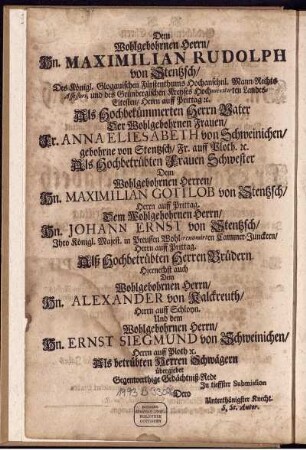 Dem
Wohlgebohrnen Herrn/
Hn. MAXIMILIAN RUDOLPH
von Stentzsch/
Des Königl. Glogauischen Fürstenthums Hochansehnl. Mann-Rechts
Assessori, und des Grünbergischen Kreises Hochmeritirten Landes-
Eltesten/ Herrn auff Prittag ꝛc.
Als Hochbekümmerten Herrn Vater
Der Wohlgebohrnen Frauen/
Fr. ANNA ELIESABETH von Schweinichen/
gebohrne von Stentzsch/ Fr. auff Ploth. ꝛc.
Als Hochbetrübten Frauen Schwester
Dem
Wohlgebohrnen Herren/
Hn. MAXIMILIAN GOTTLOB von Stentzsch/
Herrn auff Prittag.
Dem Wohlgebohrnen Herrn/
Hn. JOHANN ERNST von Stentzsch/
Ihro Königl. Majest. in Preussen Wohl Cammer-Juncken/
Herrn auff Prittag.
Alß Hochbetrübten Herren Brüdern
Hiernechst auch
Dem
Wohlgebohrnen Herrn/
Hn. ALEXANDER von Kalckreuth/
Herrn auff
Und dem
Wohlgebohrnen Herrn/
Hn. ERNST SIEGMUND von Schweinichen/
Herrn auff Ploth ꝛc.
Als betrübten Herren Schwägern
übergiebet
Gegenwärthige Gedächtniß-Rede
In tieffster Submission
Dero
Unterthänigster Knecht.